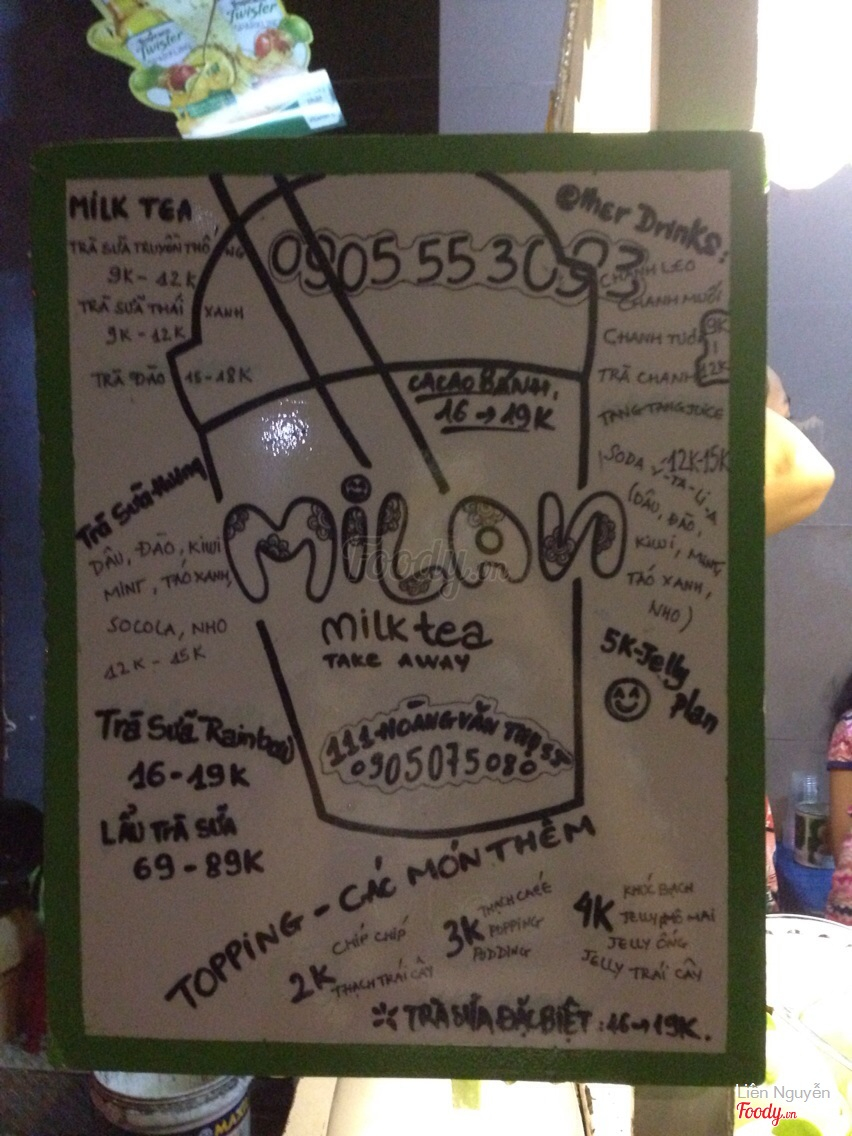 Twister
Twister
MILK TEA
TRÀ SỮA TRUYỀN THỐNG
9K - 12K
TRÀ SỮA THÁI XANH
9K - 12K
TRÀ ĐÀO 15-18K
0905 55 30 93
CACAO BÁNH,
16 → 19K
Other Drinks:
CHANH LEO
CHANH MUỐI
CHANH TƯƠI
TRÀ CHANH
9K
12K
TANG TANG JUICE
SODA 12K-15K
Ý-TA-LI-A
(DÂU, ĐÀO,
KIWI, MINT,
TÁO XANH,
NHO)
5K-Jelly
plan
Trà Sữa Hương
DÂU, ĐÀO, KIWI
MINT, TÁO XANH,
SOCOLA, NHO
12K - 15K
MiLAN
MiLK tea
TAKE AWAY
111-HOÀNG VĂN THỤ
0905075080
Trà Sữa Rainbow
16-19K
LẨU TRÀ SỮA
69-89K
TOPPING - CÁC MÓN THÊM
2K
CHÍP CHÍP
THẠCH TRÁI CÂY
3K
THẠCH CAFÉ
POPPING
PUDDING
4K
KHÚC BẠCH
JELLY PHÔ MAI
JELLY ỐNG
JELLY TRÁI CÂY
TRÀ SỮA ĐẶC BIỆT : 16 → 19K.
Foody.vn
Liên Nguyễn
Foody.vn